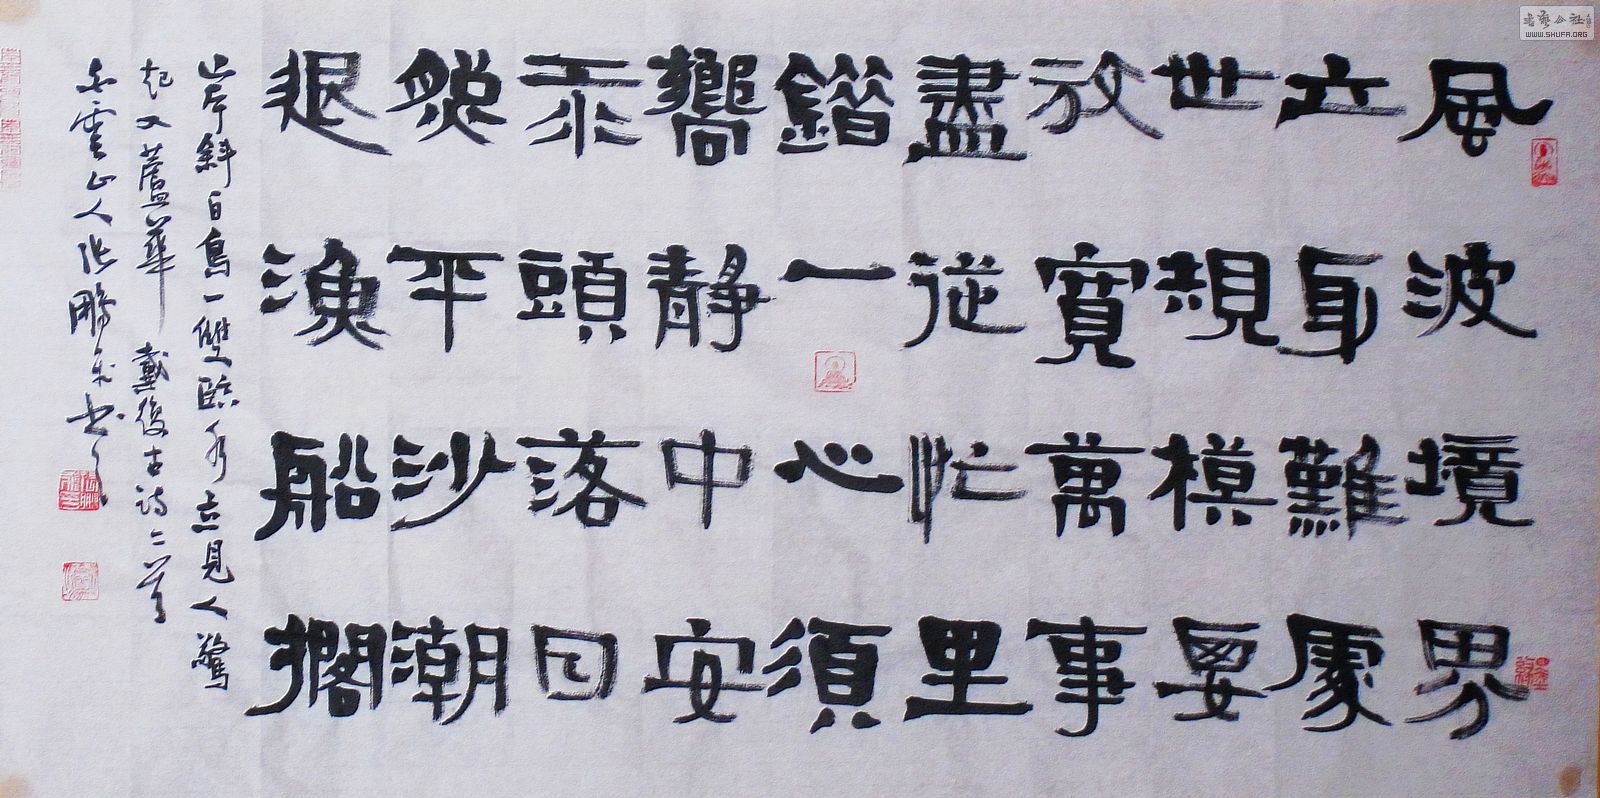 風波境界
立身難處
世規模要
放寬萬事
盡從忙里
錯一心須
嚮靜中安
汞頭落日
平沙潮
退漁船擱
岸斜白鳥一雙臨水立見人驚
起入蘆華 戴復古詩二首
雲山人張鵬書
書藝公社
WWW.SHUFA.ORG